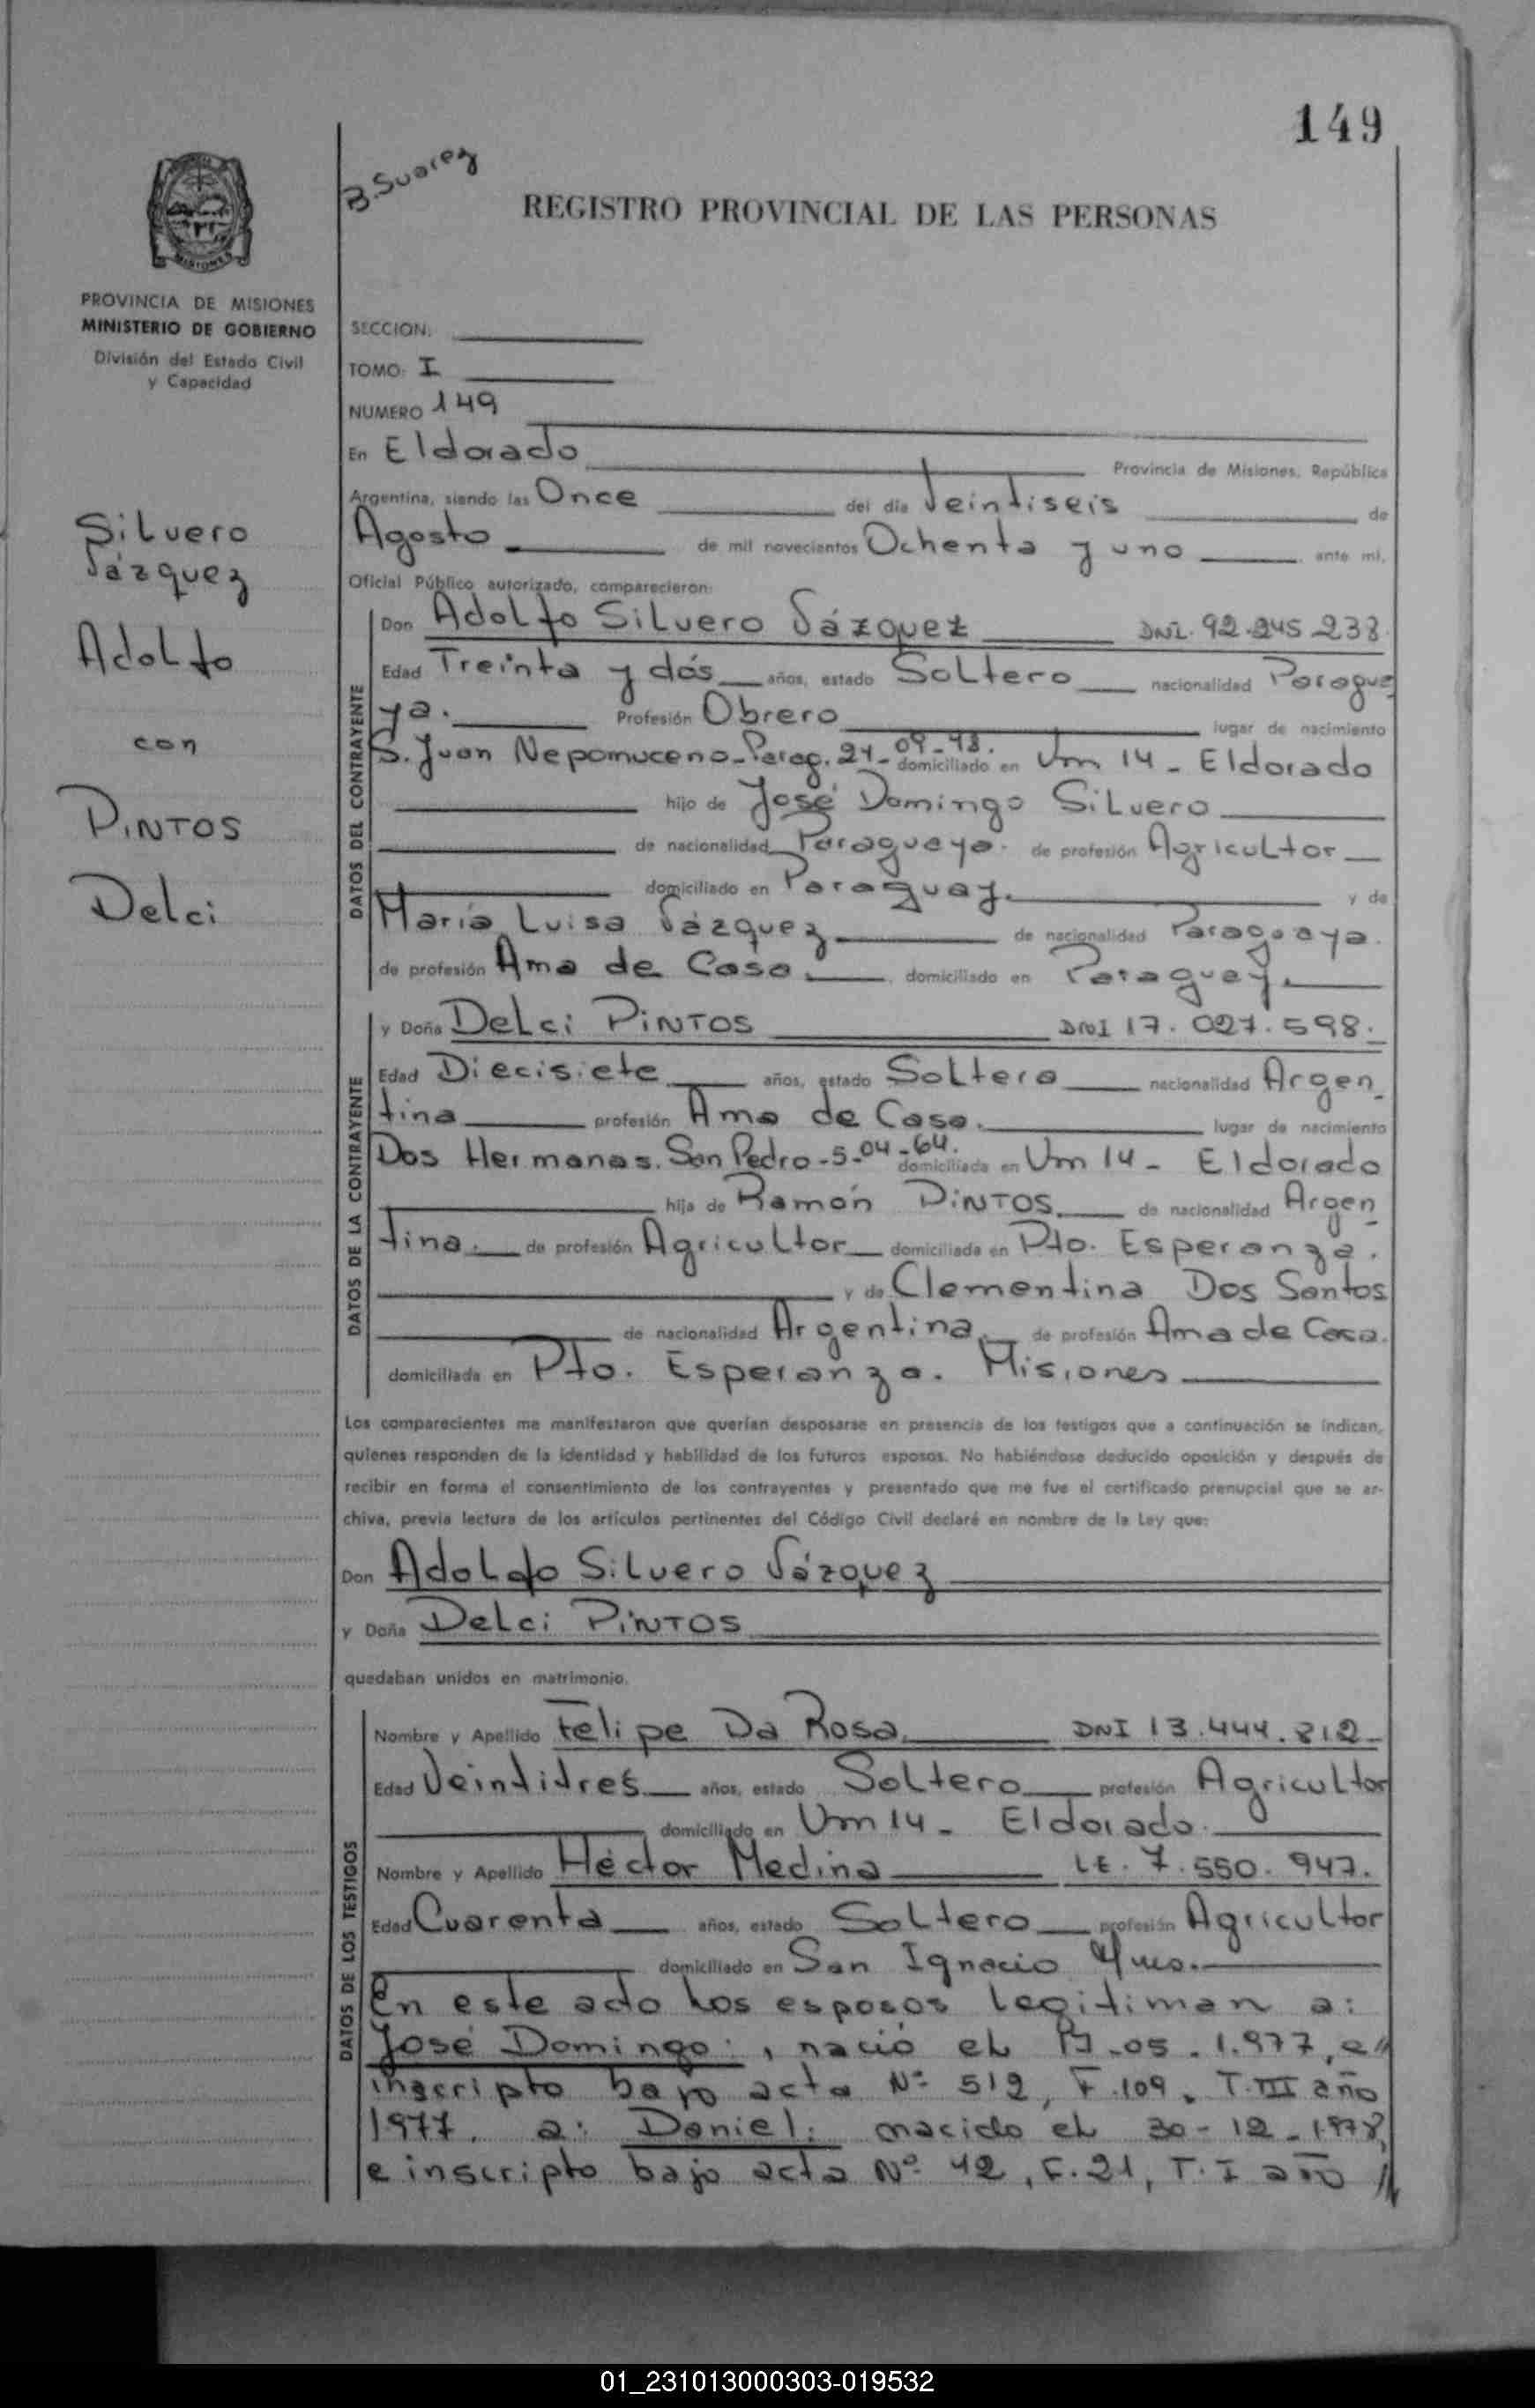 149
B. Suarez
REGISTRO PROVINCIAL DE LAS PERSONAS
MISIONES
PROVINCIA DE MISIONES
MINISTERIO DE GOBIERNO
División del Estado Civil
y Capacidad
Silvero
Vázquez
Adolfo
con
PINTOS
Delci
SECCION:
TOMO: I
NUMERO 149
En Eldorado Provincia de Misiones, República
Argentina, siendo las Once del día Veintiseis de
Agosto de mil novecientos Ochenta y uno ante mí,
Oficial Público autorizado, comparecieron:
DATOS DEL CONTRAYENTE
Don Adolfo Silvero Vázquez DNI. 92.245.238.
Edad Treinta y dós años, estado Soltero nacionalidad Paragua
ya. Profesión Obrero lugar de nacimiento
S. Juan Nepomuceno-Parag. 24-09-48. domiciliado en Um 14 - Eldorado
hijo de José Domingo Silvero
de nacionalidad Paraguaya. de profesión Agricultor
domiciliado en Paraguay. y de
María Luisa Vázquez de nacionalidad Paraguaya.
de profesión Ama de Casa. domiciliado en Paraguay.
DATOS DE LA CONTRAYENTE
y Doña Delci PINTOS DNI 17.027.598.
Edad Diecisiete años, estado Soltera nacionalidad Argen
tina profesión Ama de Casa. lugar de nacimiento
Dos Hermanas. San Pedro-5-04-64. domiciliada en Um 14 - Eldorado
hija de Ramón PINTOS. de nacionalidad Argen
tina. de profesión Agricultor domiciliada en Pto. Esperanza.
y de Clementina Dos Santos
de nacionalidad Argentina. de profesión Ama de Casa.
domiciliada en Pto. Esperanza. Misiones
Los comparecientes me manifestaron que querían desposarse en presencia de los testigos que a continuación se indican,
quienes responden de la identidad y habilidad de los futuros esposos. No habiéndose deducido oposición y después de
recibir en forma el consentimiento de los contrayentes y presentado que me fue el certificado prenupcial que se ar-
chiva, previa lectura de los artículos pertinentes del Código Civil declaré en nombre de la Ley que:
Don Adolfo Silvero Vázquez
y Doña Delci PINTOS
quedaban unidos en matrimonio.
DATOS DE LOS TESTIGOS
Nombre y Apellido Felipe Da Rosa. DNI 13.444.812-
Edad Veintitres años, estado Soltero profesión Agricultor
domiciliado en Um 14 - Eldorado.
Nombre y Apellido Héctor Medina L.E. 7.550.947.
Edad Cuarenta años, estado Soltero profesión Agricultor
domiciliado en San Ignacio Mnes.
En este acto los esposos legitiman a:
José Domingo:, nació el -05-1.977, e//
inscripto bajo acta Nº 512, F.109, T.III año
1977. a: Daniel: nacido el 30-12-1978,
e inscripto bajo acta Nº 42, F.21, T.I año //
01_231013000303-019532